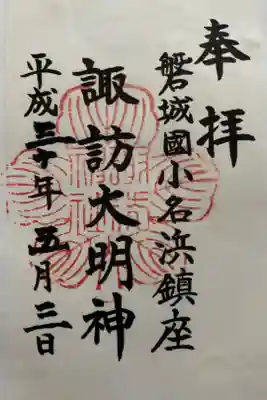 奉拝
磐城國小名浜鎮座
諏訪大明神
平成三十年五月三日